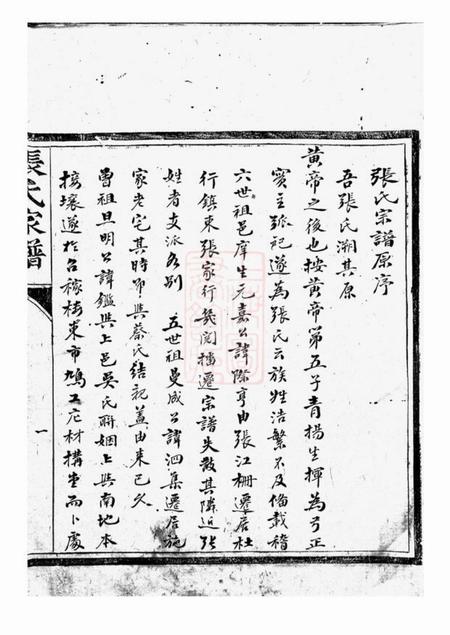 張氏宗譜原序
吾張氏溯其原
黃帝之後也按黃帝第五子青揚生揮為弓正
實主弧祀遂為張氏云族姓浩繁不及俻載稽
六世祖邑庠生元嘉公諱際亨由張江柵遷居杜
行鎮東張家行幾閱播遷宗譜失散其隣近張
姓者支派各別 五世祖曼成公諱泗集遷居施
家老宅其時即與蔡氏結親蓋由來已久
曾祖旦明公諱鑑與上邑吳氏聯姻上與南地本
接壤遂於召稼樓東市鳩工庀材構堂而卜處
張氏家譜
一